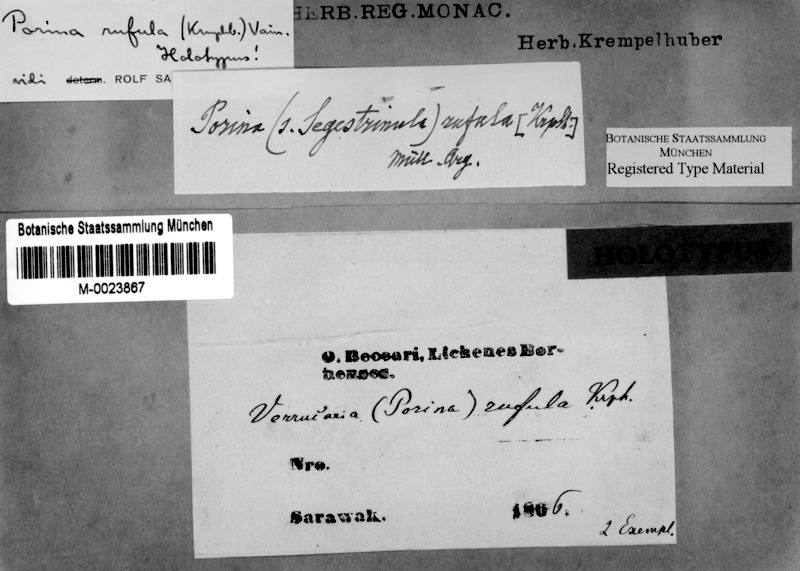 Porina rufula (Krmplh.) Vain.
Holotypus!
vidi determ. ROLF SA
HERB.REG.MONAC.
Herb.Krempelhuber
Porina (s. Segestrinula) rufula [Krplh.]
Müll. Arg.
BOTANISCHE STAATSSAMMLUNG
MÜNCHEN
Registered Type Material
Botanische Staatssammlung München
M-0023867
HOLOTYPUS
O. Beccari, Lichenes Bor-
neenses.
Verrucaria (Porina) rufula Krph.
Nro.
Sarawak. 1866.
2 Exempl.